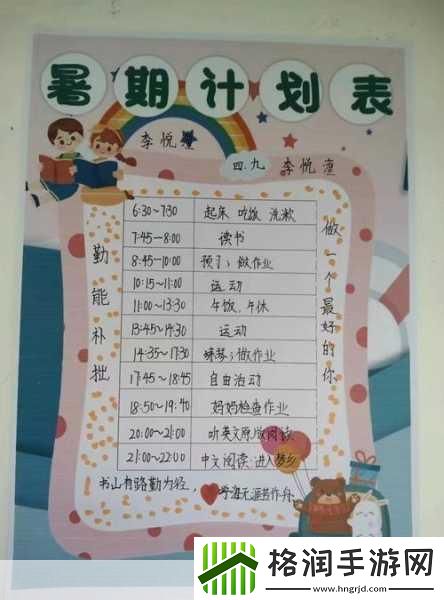 暑期计划表
李悦潼
四.九 李悦潼
6:30~7:30 起床 吃饭 洗漱
7:45—8:00 读书
8:45~10:00 预习;做作业
10:15~11:00 运动
11:00~13:30 午饭,午休
13:45~14:30 运动
14:35~17:30 练琴;做作业
17:45~18:45 自由活动
18:50~19:40 妈妈检查作业
20:00~21:00 听英文原版阅读
21:00~22:00 中文阅读 进入梦乡
勤能补拙
做一个最好的你
书山有路勤为径,
学海无涯苦作舟。
格润手游网
www.hngrjd.com